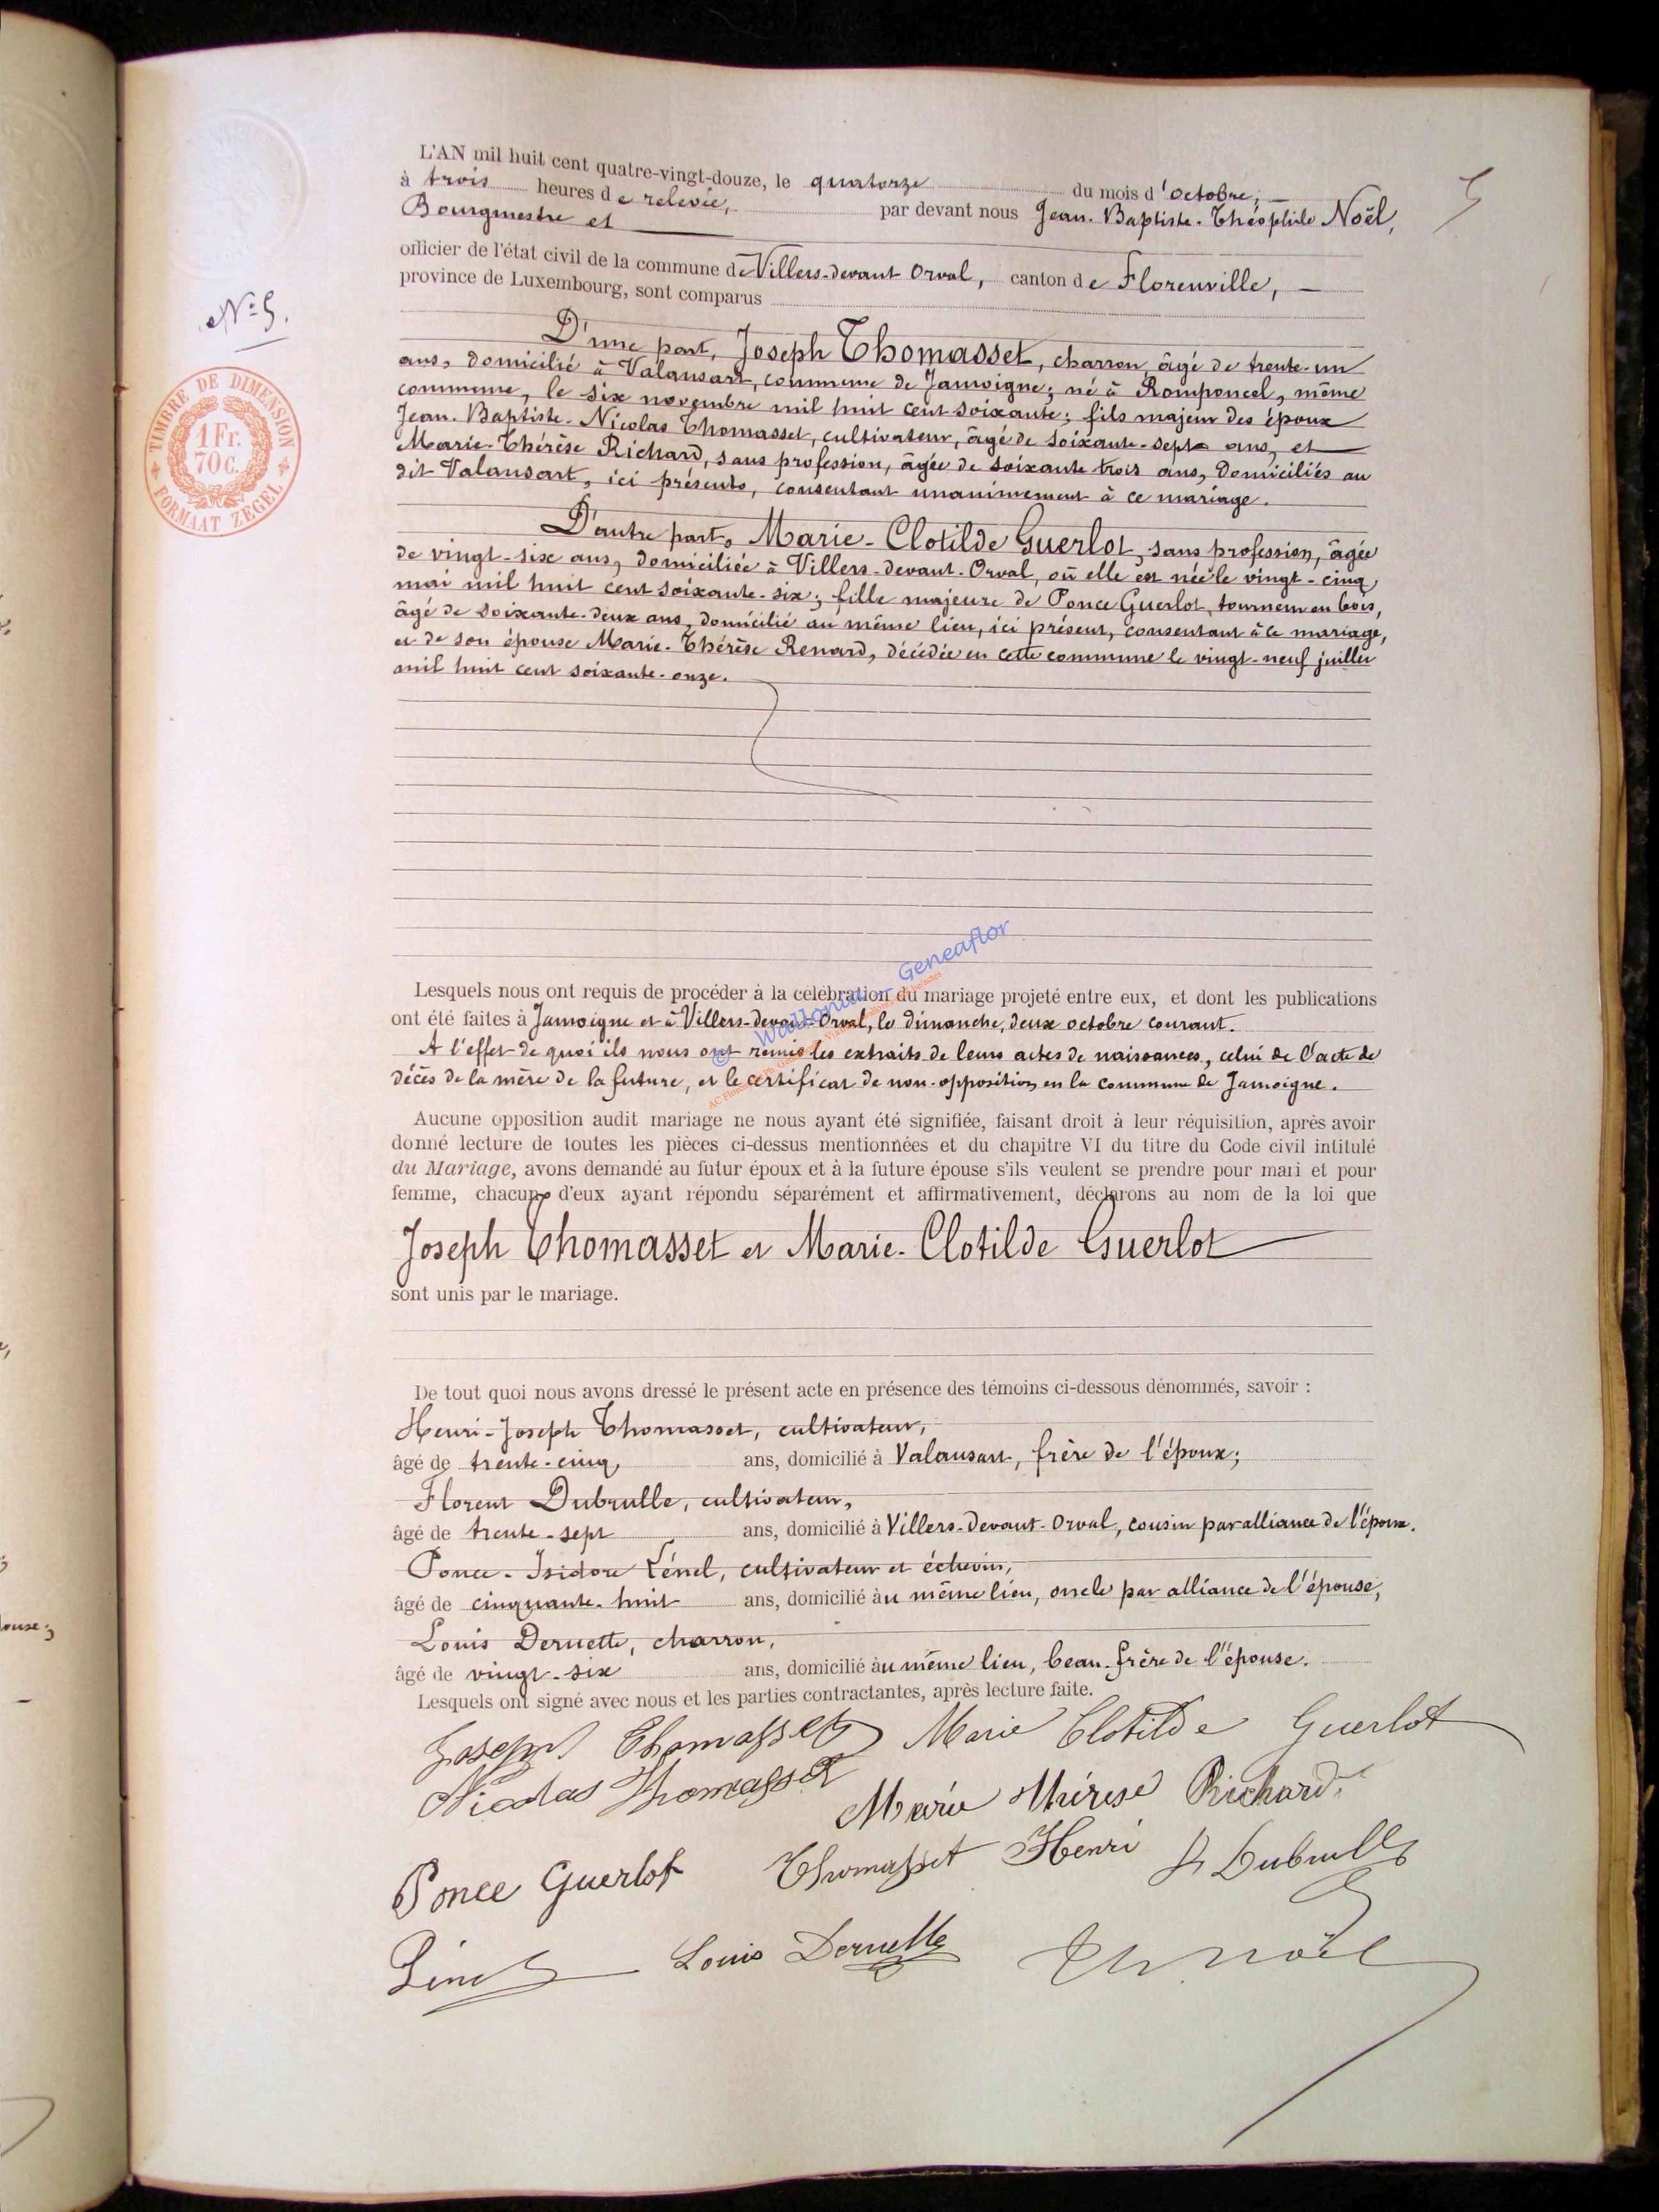 L'AN mil huit cent quatre-vingt-douze, le quatorze du mois d'octobre,
à trois heures de relevée, par devant nous Jean-Baptiste-Théophile Noël,
Bourgmestre et
officier de l'état civil de la commune de Villers-devant Orval, canton de Florenville,
province de Luxembourg, sont comparus
D'une part, Joseph Thomasset, charron, âgé de trente-un
ans, domicilié à Valansart, commune de Jamoigne; né à Romponcel, même
commune, le six novembre mil huit cent soixante; fils majeur des époux
Jean-Baptiste-Nicolas Thomasset, cultivateur, âgé de soixante-sept ans, et
Marie-Thérèse Richard, sans profession, âgée de soixante trois ans, domiciliés au
dit Valansart, ici présents, consentant unanimement à ce mariage.
D'autre part, Marie-Clotilde Guerlot, sans profession, âgée
de vingt-six ans, domiciliée à Villers-devant-Orval, où elle est née le vingt-cinq
mai mil huit cent soixante-six; fille majeure de Ponce Guerlot, tourneur en bois,
âgé de soixante-deux ans, domicilié au même lieu, ici présent, consentant à ce mariage,
et de son épouse Marie-Thérèse Renard, décédée en cette commune le vingt-neuf juillet
mil huit cent soixante-onze.
Lesquels nous ont requis de procéder à la célébration du mariage projeté entre eux, et dont les publications
ont été faites à Jamoigne et à Villers-devant-Orval, le dimanche, deux octobre courant.
A l'effet de quoi ils nous ont remis les extraits de leurs actes de naissances, celui de l'acte de
décès de la mère de la future, et le certificat de non-opposition en la commune de Jamoigne.
Aucune opposition audit mariage ne nous ayant été signifiée, faisant droit à leur réquisition, après avoir
donné lecture de toutes les pièces ci-dessus mentionnées et du chapitre VI du titre du Code civil intitulé
du Mariage, avons demandé au futur époux et à la future épouse s'ils veulent se prendre pour mari et pour
femme, chacun d'eux ayant répondu séparément et affirmativement, déclarons au nom de la loi que
Joseph Thomasset et Marie-Clotilde Guerlot
sont unis par le mariage.
De tout quoi nous avons dressé le présent acte en présence des témoins ci-dessous dénommés, savoir :
Henri-Joseph Thomasset, cultivateur,
âgé de trente-cinq ans, domicilié à Valansart, frère de l'époux;
Florent Dubrulle, cultivateur,
âgé de trente-sept ans, domicilié à Villers-devant-Orval, cousin par alliance de l'époux.
Ponce-Isidore cultivateur et échevin,
âgé de cinquante-huit ans, domicilié au même lieu, oncle par alliance de l'épouse,
Louis Deruette, charron,
âgé de vingt-six ans, domicilié au même lieu, beau-frère de l'épouse.
Lesquels ont signé avec nous et les parties contractantes, après lecture faite.
Joseph Thomasset Marie Clotilde Guerlot
Nicolas Thomasset Marie Thérese Richard
Ponce Guerlot Thomasset Henri Dubrulle
Louis Deruette Th Noël
N° 5.
5
TIMBRE DE DIMENSION
1 Fr.
70 C.
FORMAAT ZEGEL
© Wallonia - Geneaflor